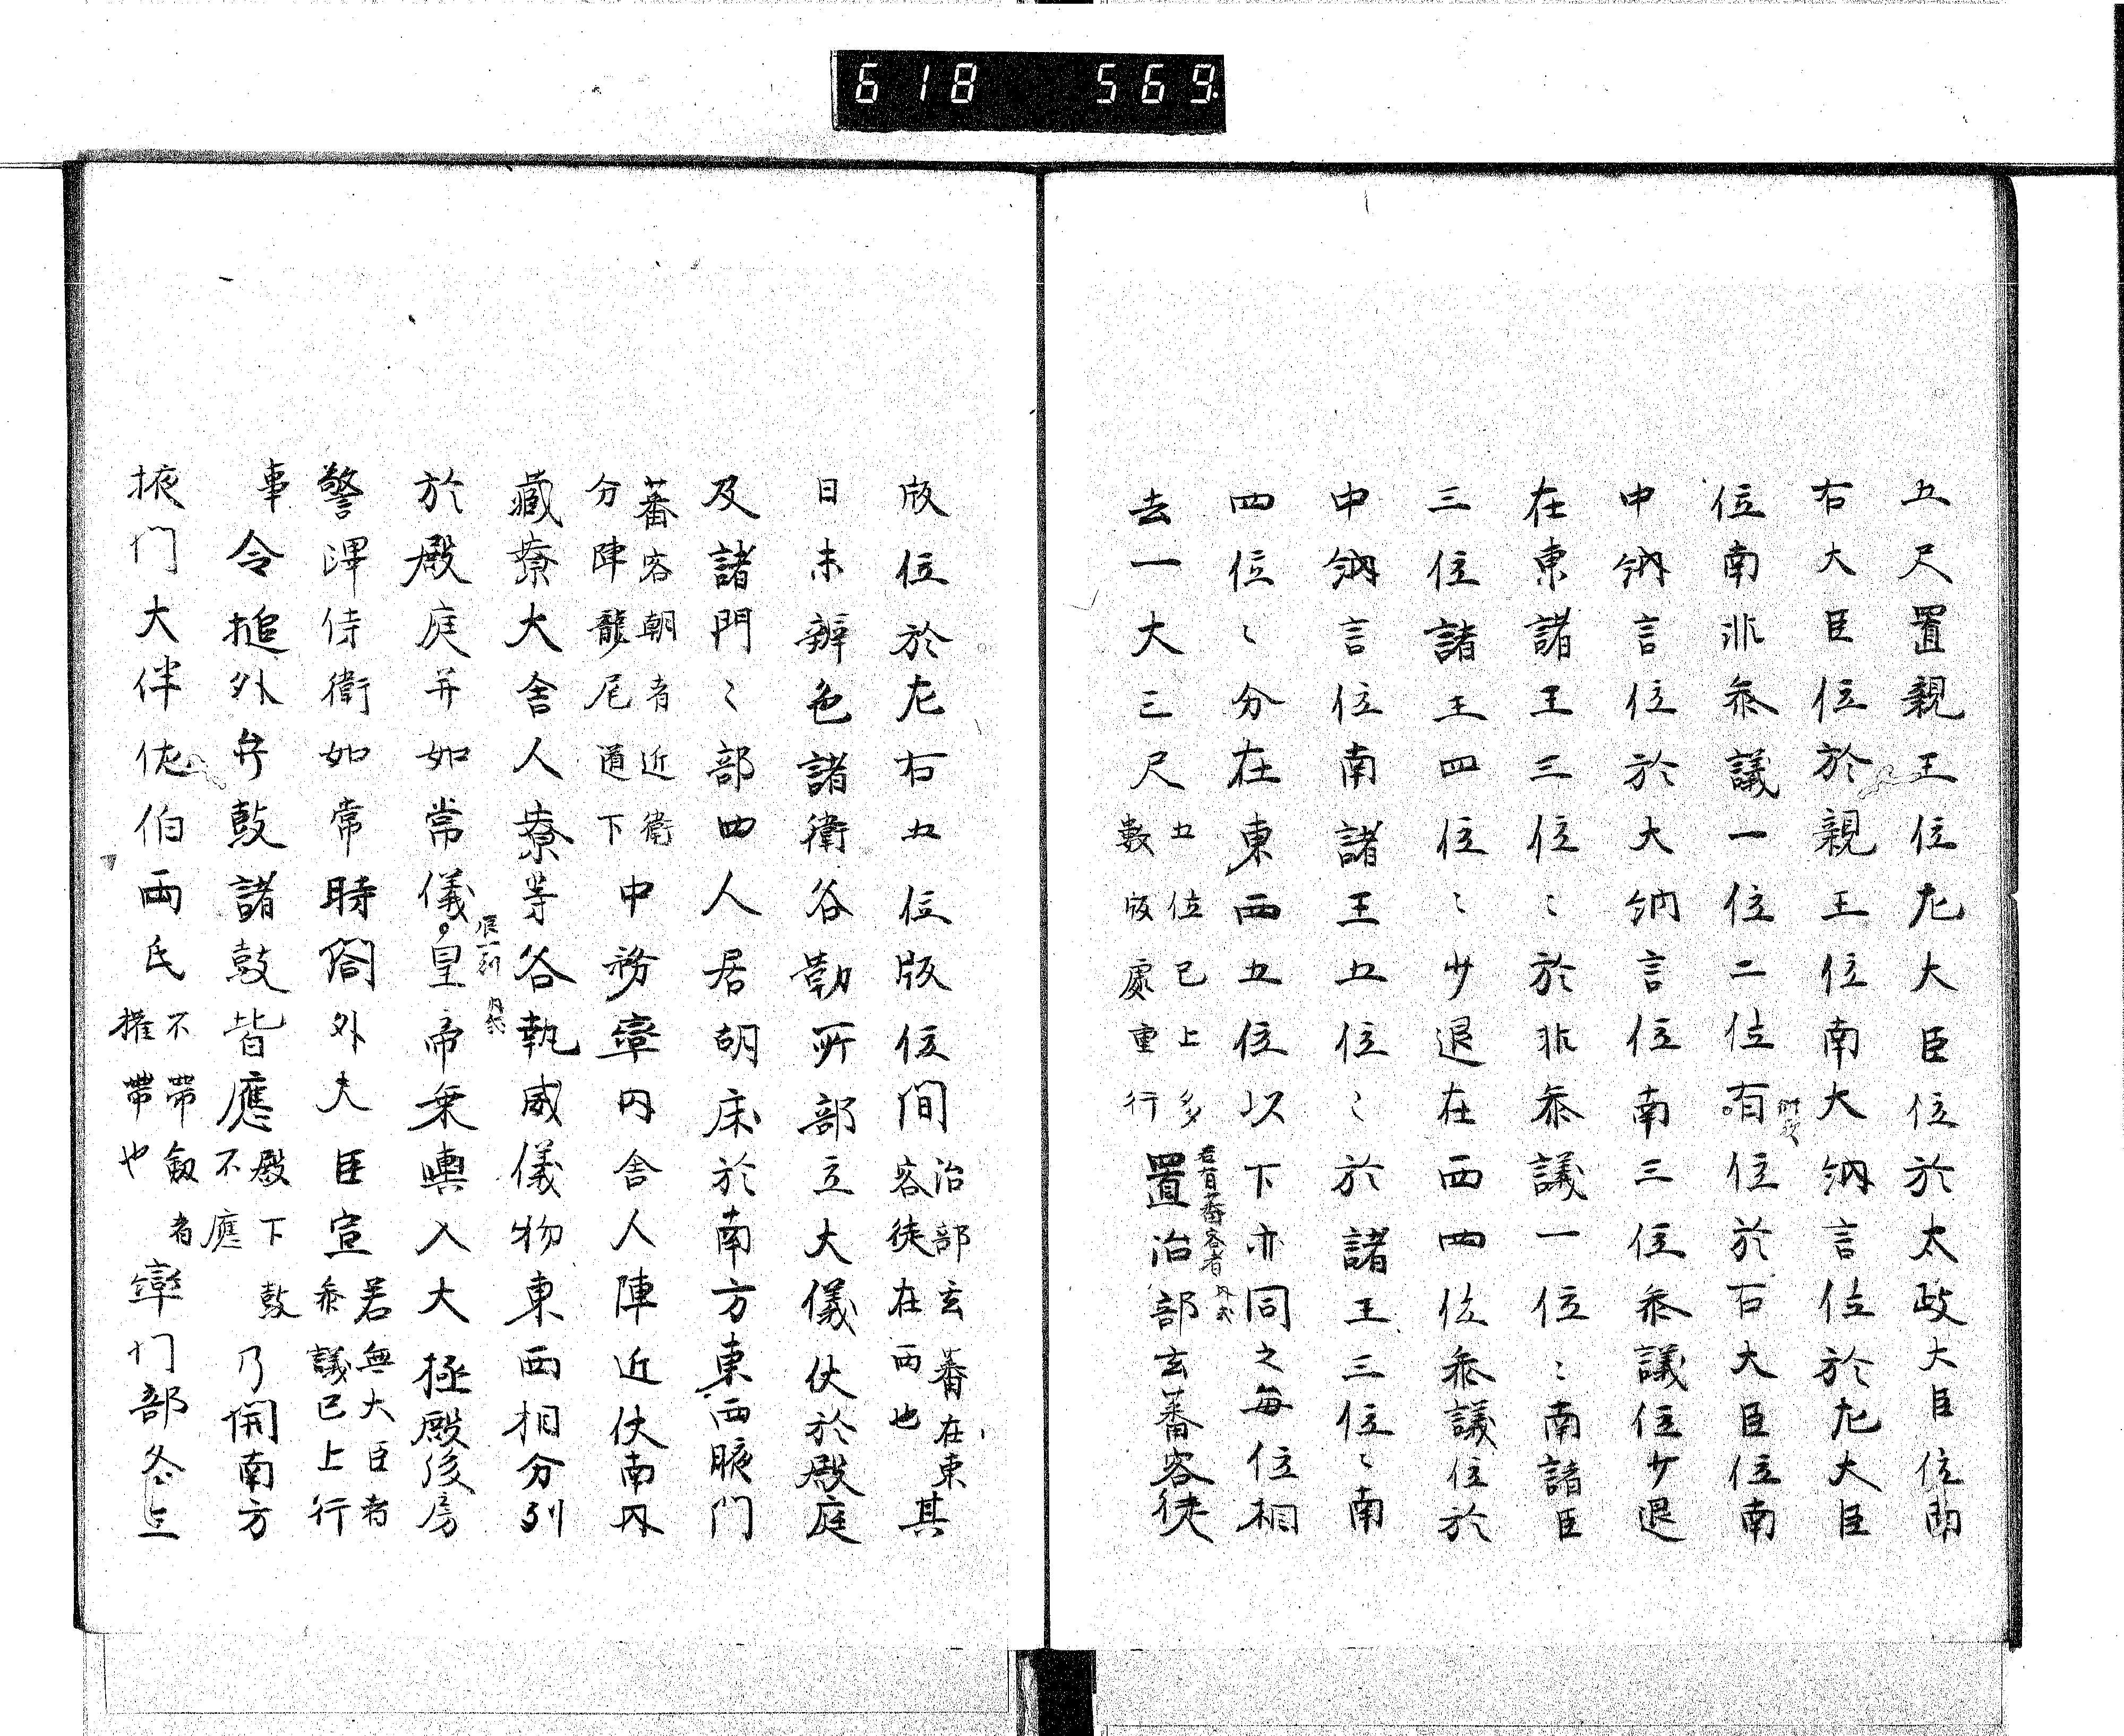 618 569
五尺置親王位左大臣位於太政大臣位南
右大臣位於親王位南大納言位於左大臣
位南非参議一位二位有位於右大臣位南
中納言位於大納言位南三位参議位少退
在東諸王三位〻於非参議一位〻南諸臣
三位諸王四位〻少退在西四位参議位於
中納言位南諸王五位〻於諸王三位〻南
四位〻分在東西五位以下亦同之毎位相
去一大三尺五位已上多數版處重行置治部玄蕃客徒
若有蕃客者
版位於左右五位版位間治部玄蕃在東客徒在西也其
日未辨色諸衛各勒所部立大儀仗於殿庭
及諸門〻部四人居胡床於南方東西腋門
蕃客朝者近衛分陣龍尼道下中務率内舎人陣近仗南内
藏寮大舎人寮等各執威儀物東西相分列
於殿庭并如常儀皇帝乗輿入大極殿後房
辰一刻
警蹕侍衛如常時尅外大臣宣若無大臣者参議已上行
事令搥外弁鼓諸鼓皆應殿下鼓不應乃開南方
掖門大伴佐伯両氏不帯劔者権帯也率門部各三